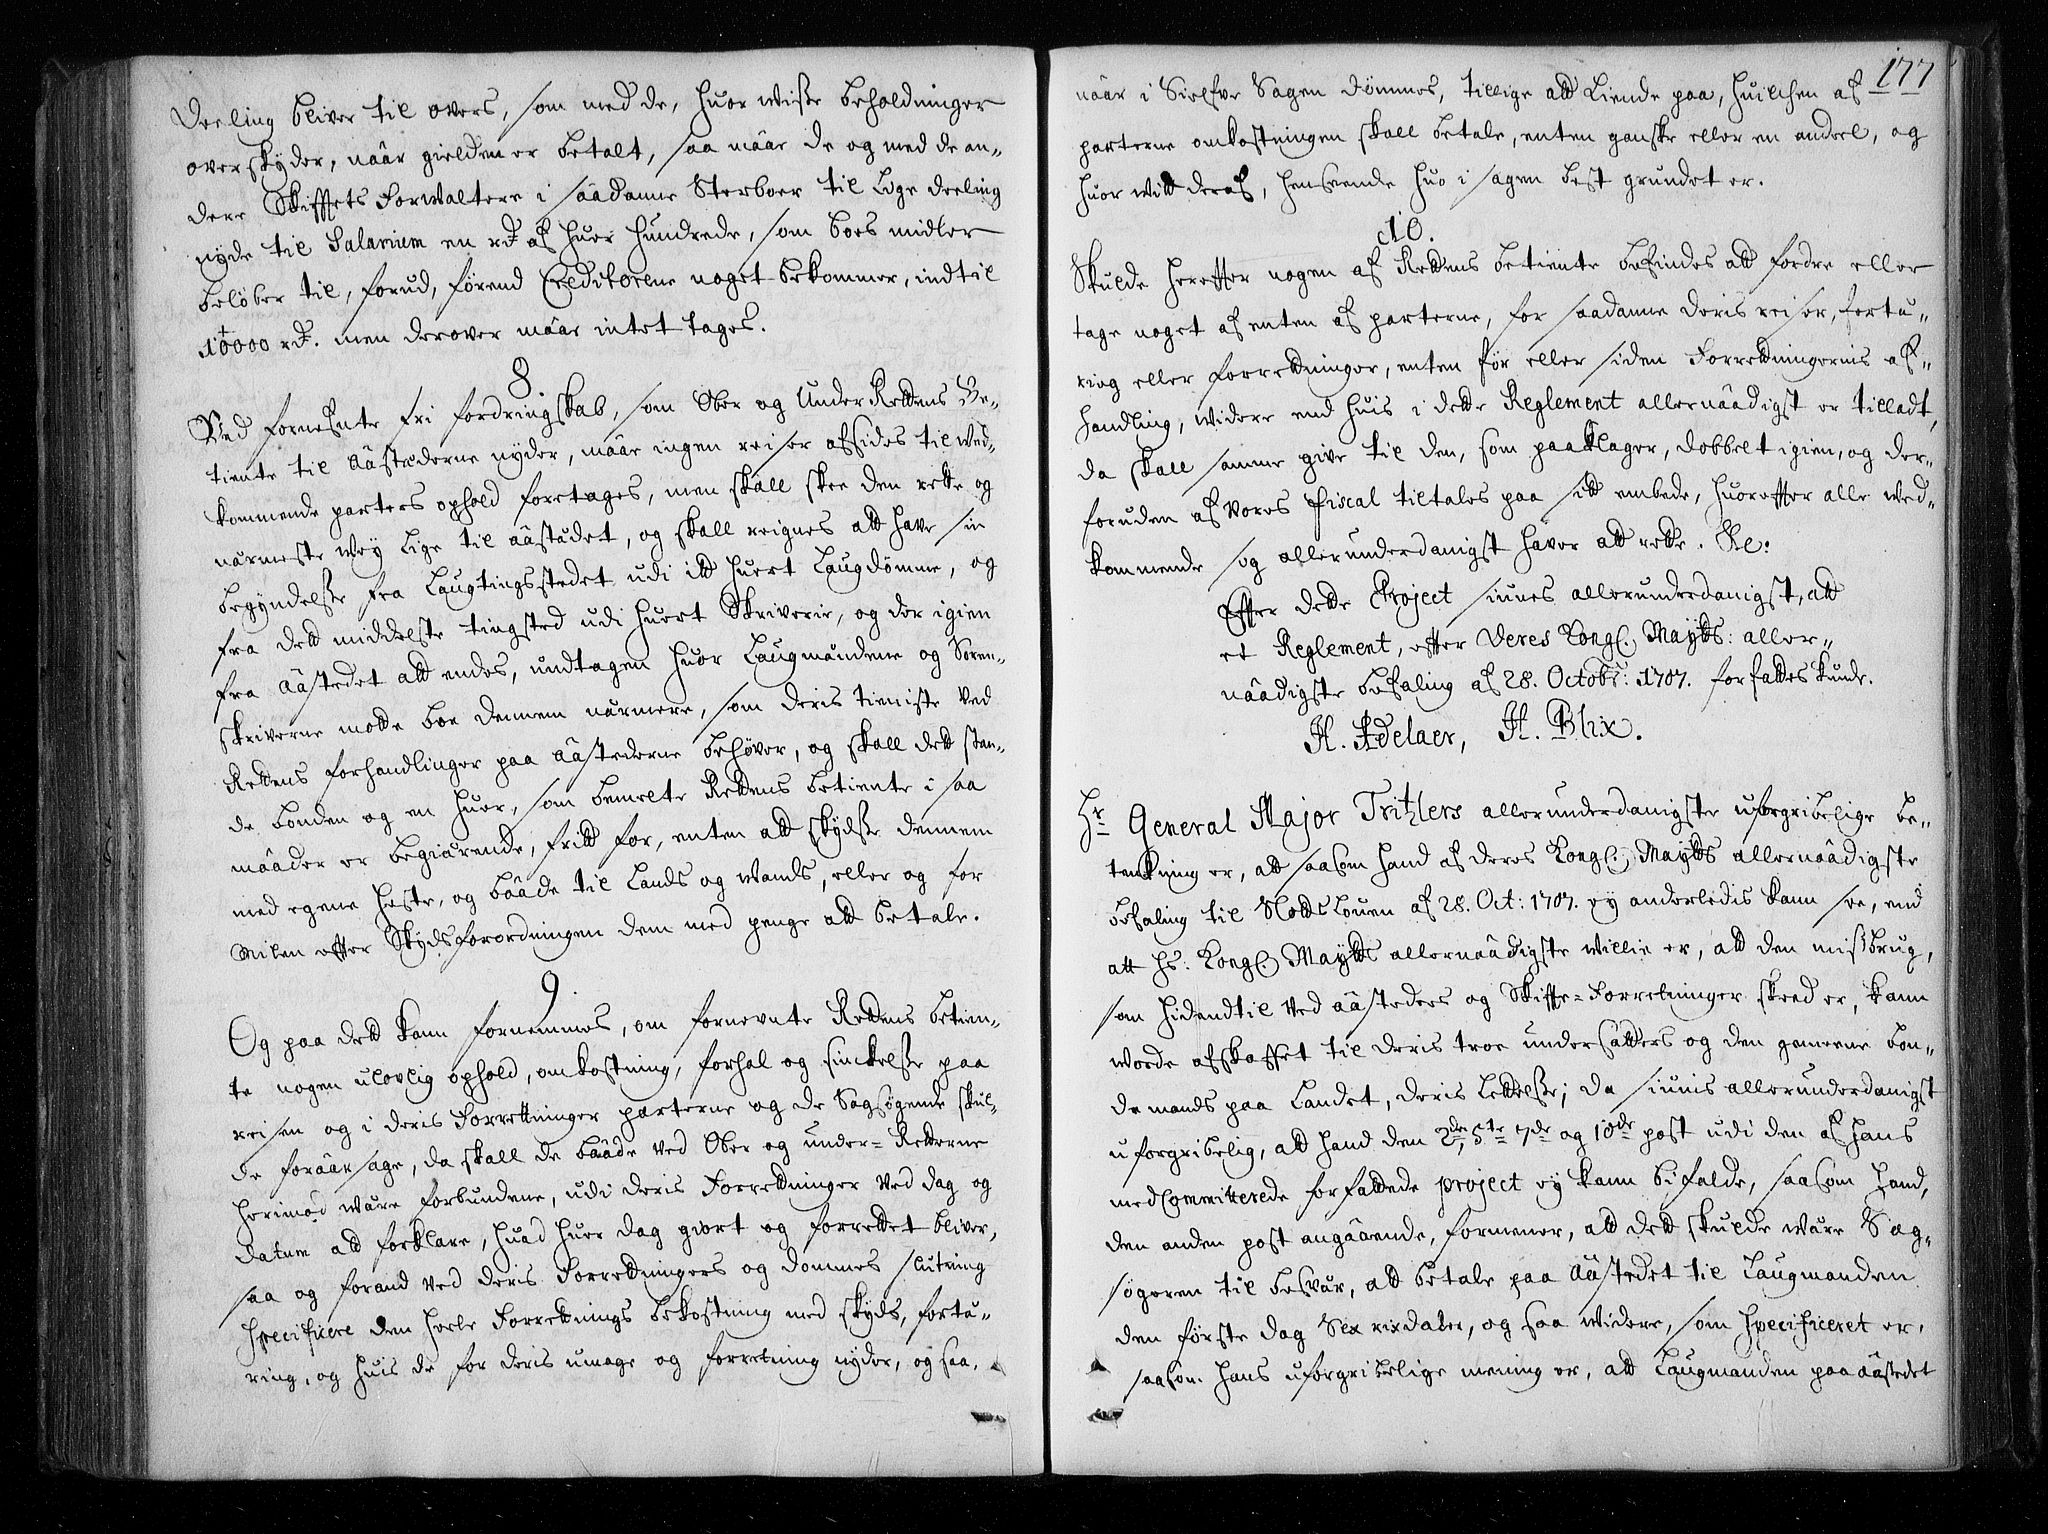 Deeling bliver til overs, som med de, huor wisse beholdninger
overskyder, nâar gielden er betalt, saa mâar de og med de an„
dere Skifftets Forwaltere i sâadanne Sterboer til Lige deeling
nyde til Salarium en rdr af huer Hundrede, som boes midler
beløber til, forud, førend Creditorerne noget bekommer, indtil
10000 rdr. men derover mâar intet tages.
8.
Ved fornefnte fri fordringskab, som Ober og Under Rettens Be„
tiente til Aâstæderne nyder, mâar ingen reiser afsides til Ved„
kommende parters ophold foretages, men skall skee den rette og
nærmeste Wey Lige til Aâstædet, og skall reignes att have sin
begyndelse fra Laugtingsstedet udi itt huert Laugdømme, og
fra dett middelste tingsted udi huert Skriverie, og der igien
fra Aâstedet att endes, undtagen huor Laugmændene og Soren„
skriverne motte boe dennem nærmere, som deris tieniste ved
Rettens forhandlinger paa Aâstederne behøver, og skall dett stan„
de bonden og en huer, som bemelte Rettens betiente i saa
mâader er begiærende, fritt for, enten att skydse dennem
med egene heste, og bâade til Lands og Wands, eller og for
Milen effter Skydsforordningen dem med penge att betale.
9.
Og paa dett kann fornemmes, om fornevnte Rettens betien„
te nogen ulovlig ophold, omkostning, forhal og sinckelse paa
reisen og i deris Forrettninger parterne og de Sagsøgende skul„
de forâarsage, da skall de bâade ved Ober og under= Retterne
herimod wære forbundene, udi deris Forrettninger ved dag og
datum att forklare, huad huer dag giort og forrettet bliver,
saa og forand ved deris Forrettningers og dommes slutning
specificere den heele Forrettnings bekostning med skyds, fortæ„
ring, og huis de for deris umage og forretning nyder, og saa,
177
nâar i Sielfve Sagen dømmes, tillige att Kiende paa, huilchen af
parterne omkostningen skall betale, enten ganske eller en andeel, og
huor witt deraf, henseende huo i sagen best grundet er.
10.
Skulde herefter nogen af Rettens betiente befindes att fordre eller
tage noget af enten af parterne, for saadanne deris reiser, fortæ„
ring eller forrettninger, enten før eller siden Forrettningernis af„
handling, widere end huis i dette Reglement allernâadigst er tilladt,
da skall samme give til den, som paaklager, dobbelt igien, og der„
foruden af vores fiscal tiltales paa sitt embede, huorefter alle Wed„
kommende sig allerunderdanigst haver att rette. Re:
Effter dette Project siunes allerunderdanigst, att
et Reglement, effter Deres Kongl. Maytts: aller„
nâadigste befaling af 28. Octobr: 1707. forfattes kunde.
H. Adelaer, H. Blix.
Hr General Major Tritzlers allerunderdanigste uforgribelige be„
tenkning er, att saasom hand af deres Kongl. Maytts allernâadigste
befaling til Slottsloven af 28. Oct: 1707. ey anderledis kann see, end
att hs: Kongl. Maytts allernâadigste willie er, att den misbrug,
som hidendtil ved aâsteders og Skiffte=Forretninger skeed er, kann
worde afskaffet til deris troe undersâtters og den gemeene bon„
de mands paa Landet, deris Lettelse; da siunis allerunderdanigst
uforgribelig, att hand den 2de, 5te 7de og 10de post udi den af hans
medcommitterede forfattede project ey kann bifalde, saasom hand,
den anden post angâaende, formener, att dett skulde wære Sag„
søgeren til besvær, att betale paa Aâstedet til Laugmanden
den første dag Sex rixdaler, og saa widere, som specificeret er,
saasom hans uforgribelige mening er, att Laugmanden paa aâstedet